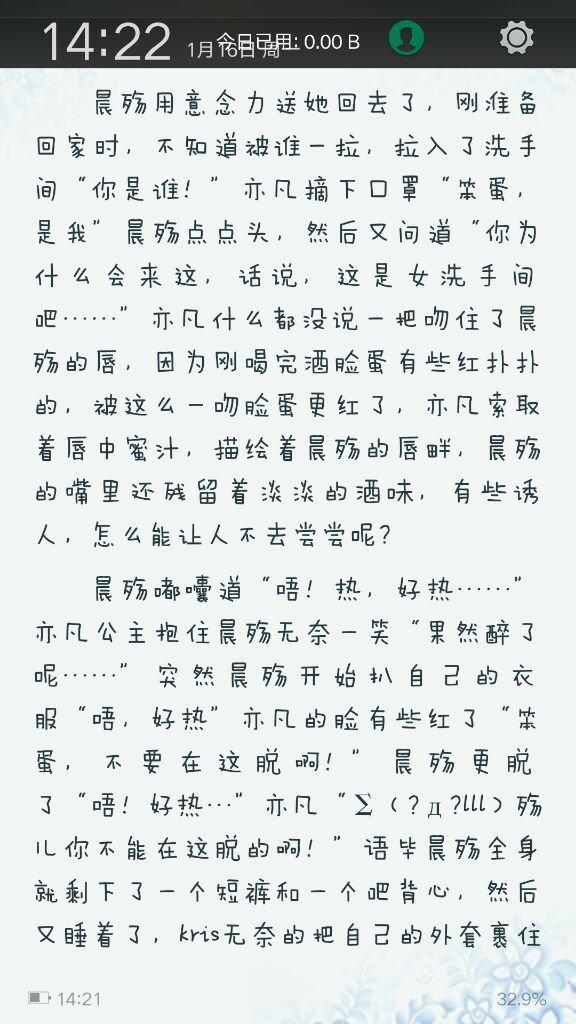 14:22 1月16日 周一 今日已用: 0.00 B
晨殇用意念力送她回去了，刚准备
回家时，不知道被谁一拉，拉入了洗手
间“你是谁！”亦凡摘下口罩“笨蛋，
是我”晨殇点点头，然后又问道“你为
什么会来这，话说，这是女洗手间
吧……”亦凡什么都没说一把吻住了晨
殇的唇，因为刚喝完酒脸蛋有些红扑扑
的，被这么一吻脸蛋更红了，亦凡索取
着唇中蜜汁，描绘着晨殇的唇畔，晨殇
的嘴里还残留着淡淡的酒味，有些诱
人，怎么能让人不去尝尝呢？
晨殇嘟囔道“唔！热，好热……”
亦凡公主抱住晨殇无奈一笑“果然醉了
呢……”突然晨殇开始扒自己的衣
服“唔，好热”亦凡的脸有些红了“笨
蛋，不要在这脱啊！”晨殇更脱
了“唔！好热…”亦凡“Σ（？д？lll）殇
儿你不能在这脱的啊！”语毕晨殇全身
就剩下了一个短裤和一个吧背心，然后
又睡着了，kris无奈的把自己的外套裹住
14:21 32.9%